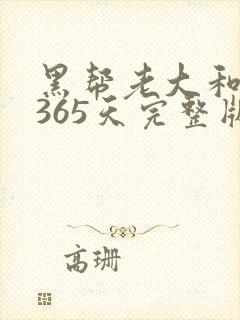 黑帮老大和
365天完整版
高珊